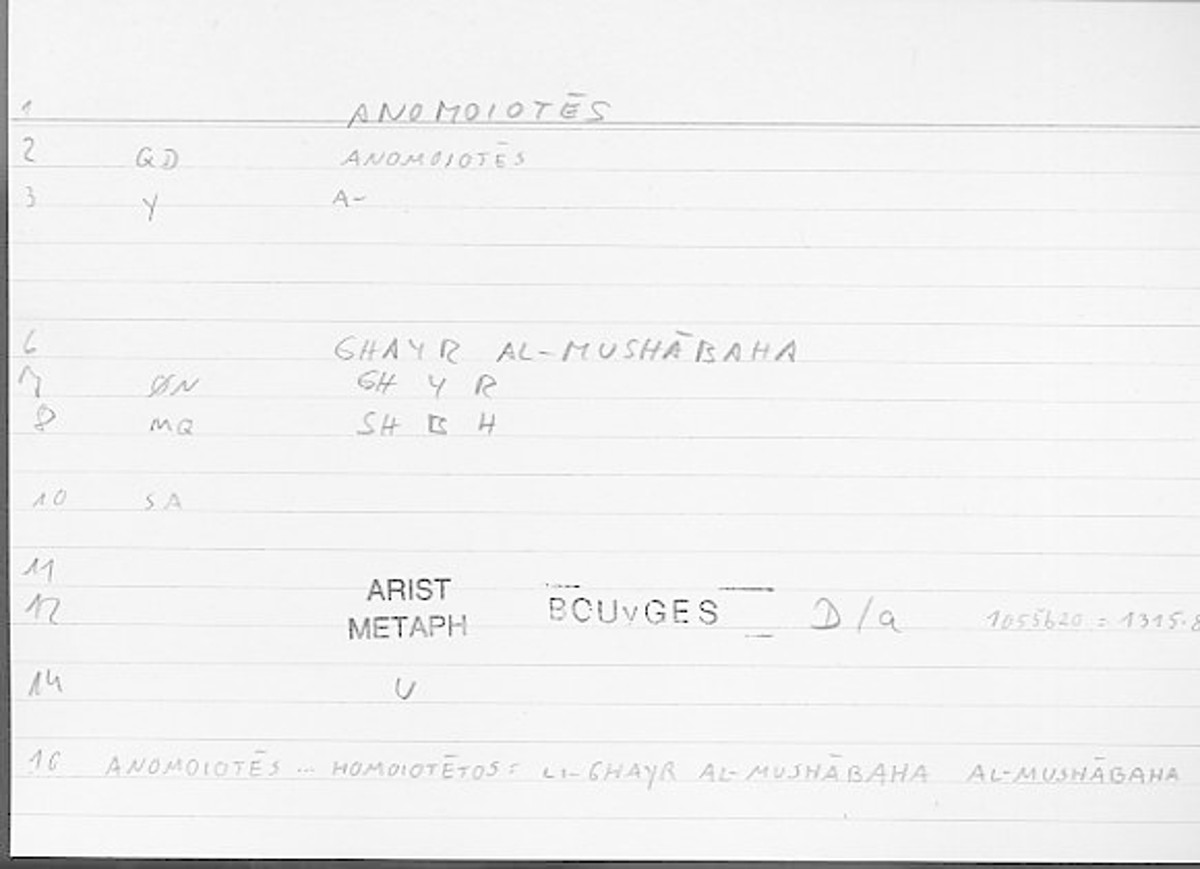 1 ANOMOIOTĒS
2 GD ANOMOIOTĒS
3 Y A-
6 GHAYR AL-MUSHĀBAHA
7 ØN GH Y R
8 MQ SH B H
10 SA
11 ARIST
12 METAPH BOUvGES D/a 1055b20 = 1315.8
14 U
16 ANOMOIOTĒS ... HOMOIOTĒTOS = LI-GHAYR AL-MUSHĀBAHA AL-MUSHĀBAHA